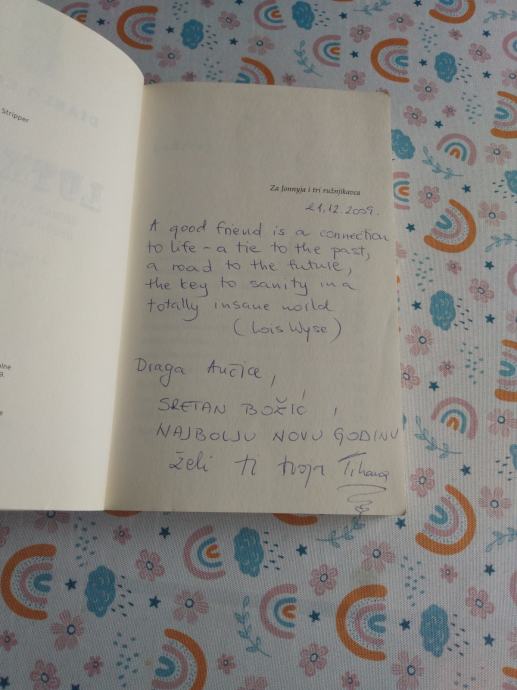 Stripper
Za Jonnyja i tri ružnjikavca
21.12.2009.
A good friend is a connection
to life - a tie to the past,
a road to the future,
the key to sanity in a
totally insane world
(Lois Wyse)
Draga Ančice,
SRETAN BOŽIĆ,
NAJBOLJU NOVU GODINU
želi ti tvoja Tihana